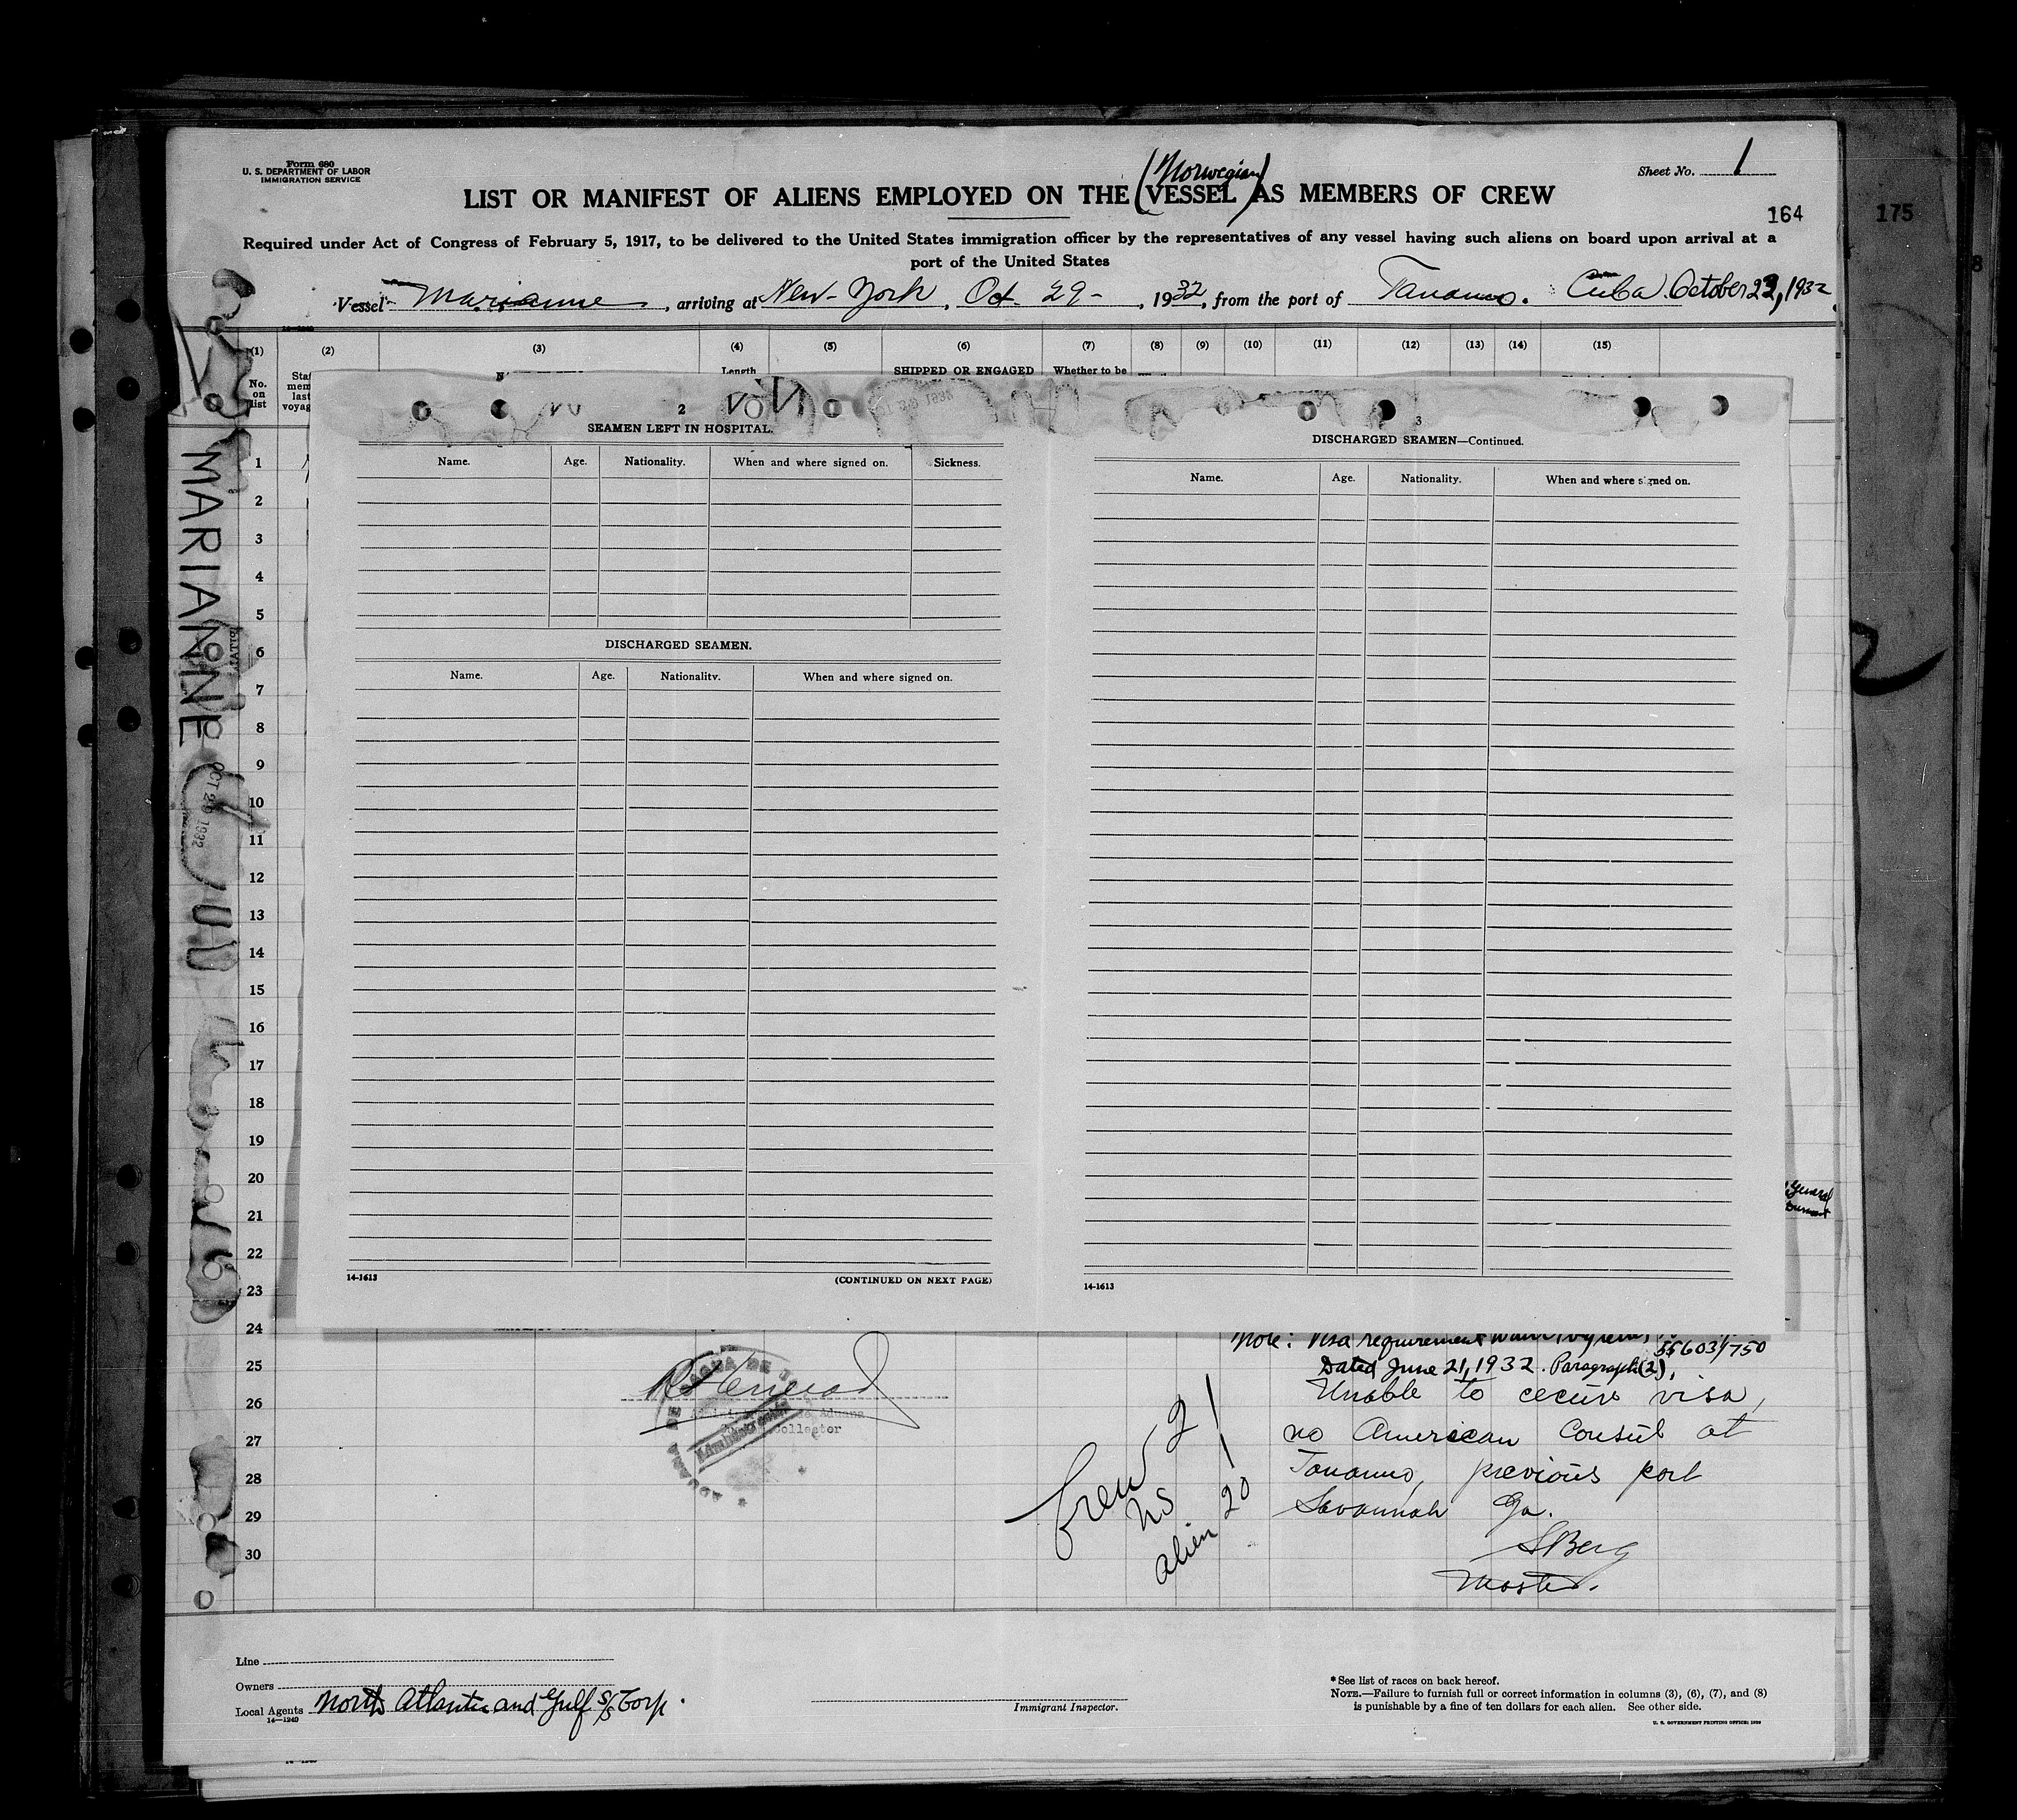 Form 680
U. S. DEPARTMENT OF LABOR
IMMIGRATION SERVICE
Sheet No. 1
(Norwegian)
LIST OR MANIFEST OF ALIENS EMPLOYED ON THE VESSEL AS MEMBERS OF CREW
164
175
Required under Act of Congress of February 5, 1917, to be delivered to the United States immigration officer by the representatives of any vessel having such aliens on board upon arrival at a
port of the United States
Vessel Marianne, arriving at New-York, Oct 29-, 1932, from the port of Tanamo. Cuba October 22, 1932
(1) (2) (3) (4) (5) (6) (7) (8) (9) (10) (11) (12) (13) (14) (15)
No. on list
Length
SHIPPED OR ENGAGED
Whether to be
MARIANNE
OCT 29 1932
2
SEAMEN LEFT IN HOSPITAL.
Name. Age. Nationality. When and where signed on. Sickness.
DISCHARGED SEAMEN.
Name. Age. Nationality. When and where signed on.
14-1613
(CONTINUED ON NEXT PAGE)
3
DISCHARGED SEAMEN—Continued.
Name. Age. Nationality. When and where signed on.
14-1613
1
2
3
4
5
6
7
8
9
10
11
12
13
14
15
16
17
18
19
20
21
22
23
24
25
26
27
28
29
30
Note: Visa requirement
55603/750
Dated June 21, 1932. Paragraph (2),
Unable to cecure visa,
no American Consul at
Tanamo, previous port
Savannah Ga.
SBerg
Master.
Collector
Crew 21
US 1
alien 20
Line
Owners
Local Agents North Atlantic and Gulf S/S Corp.
14—1240
Immigrant Inspector.
* See list of races on back hereof.
NOTE.—Failure to furnish full or correct information in columns (3), (6), (7), and (8)
is punishable by a fine of ten dollars for each alien. See other side.